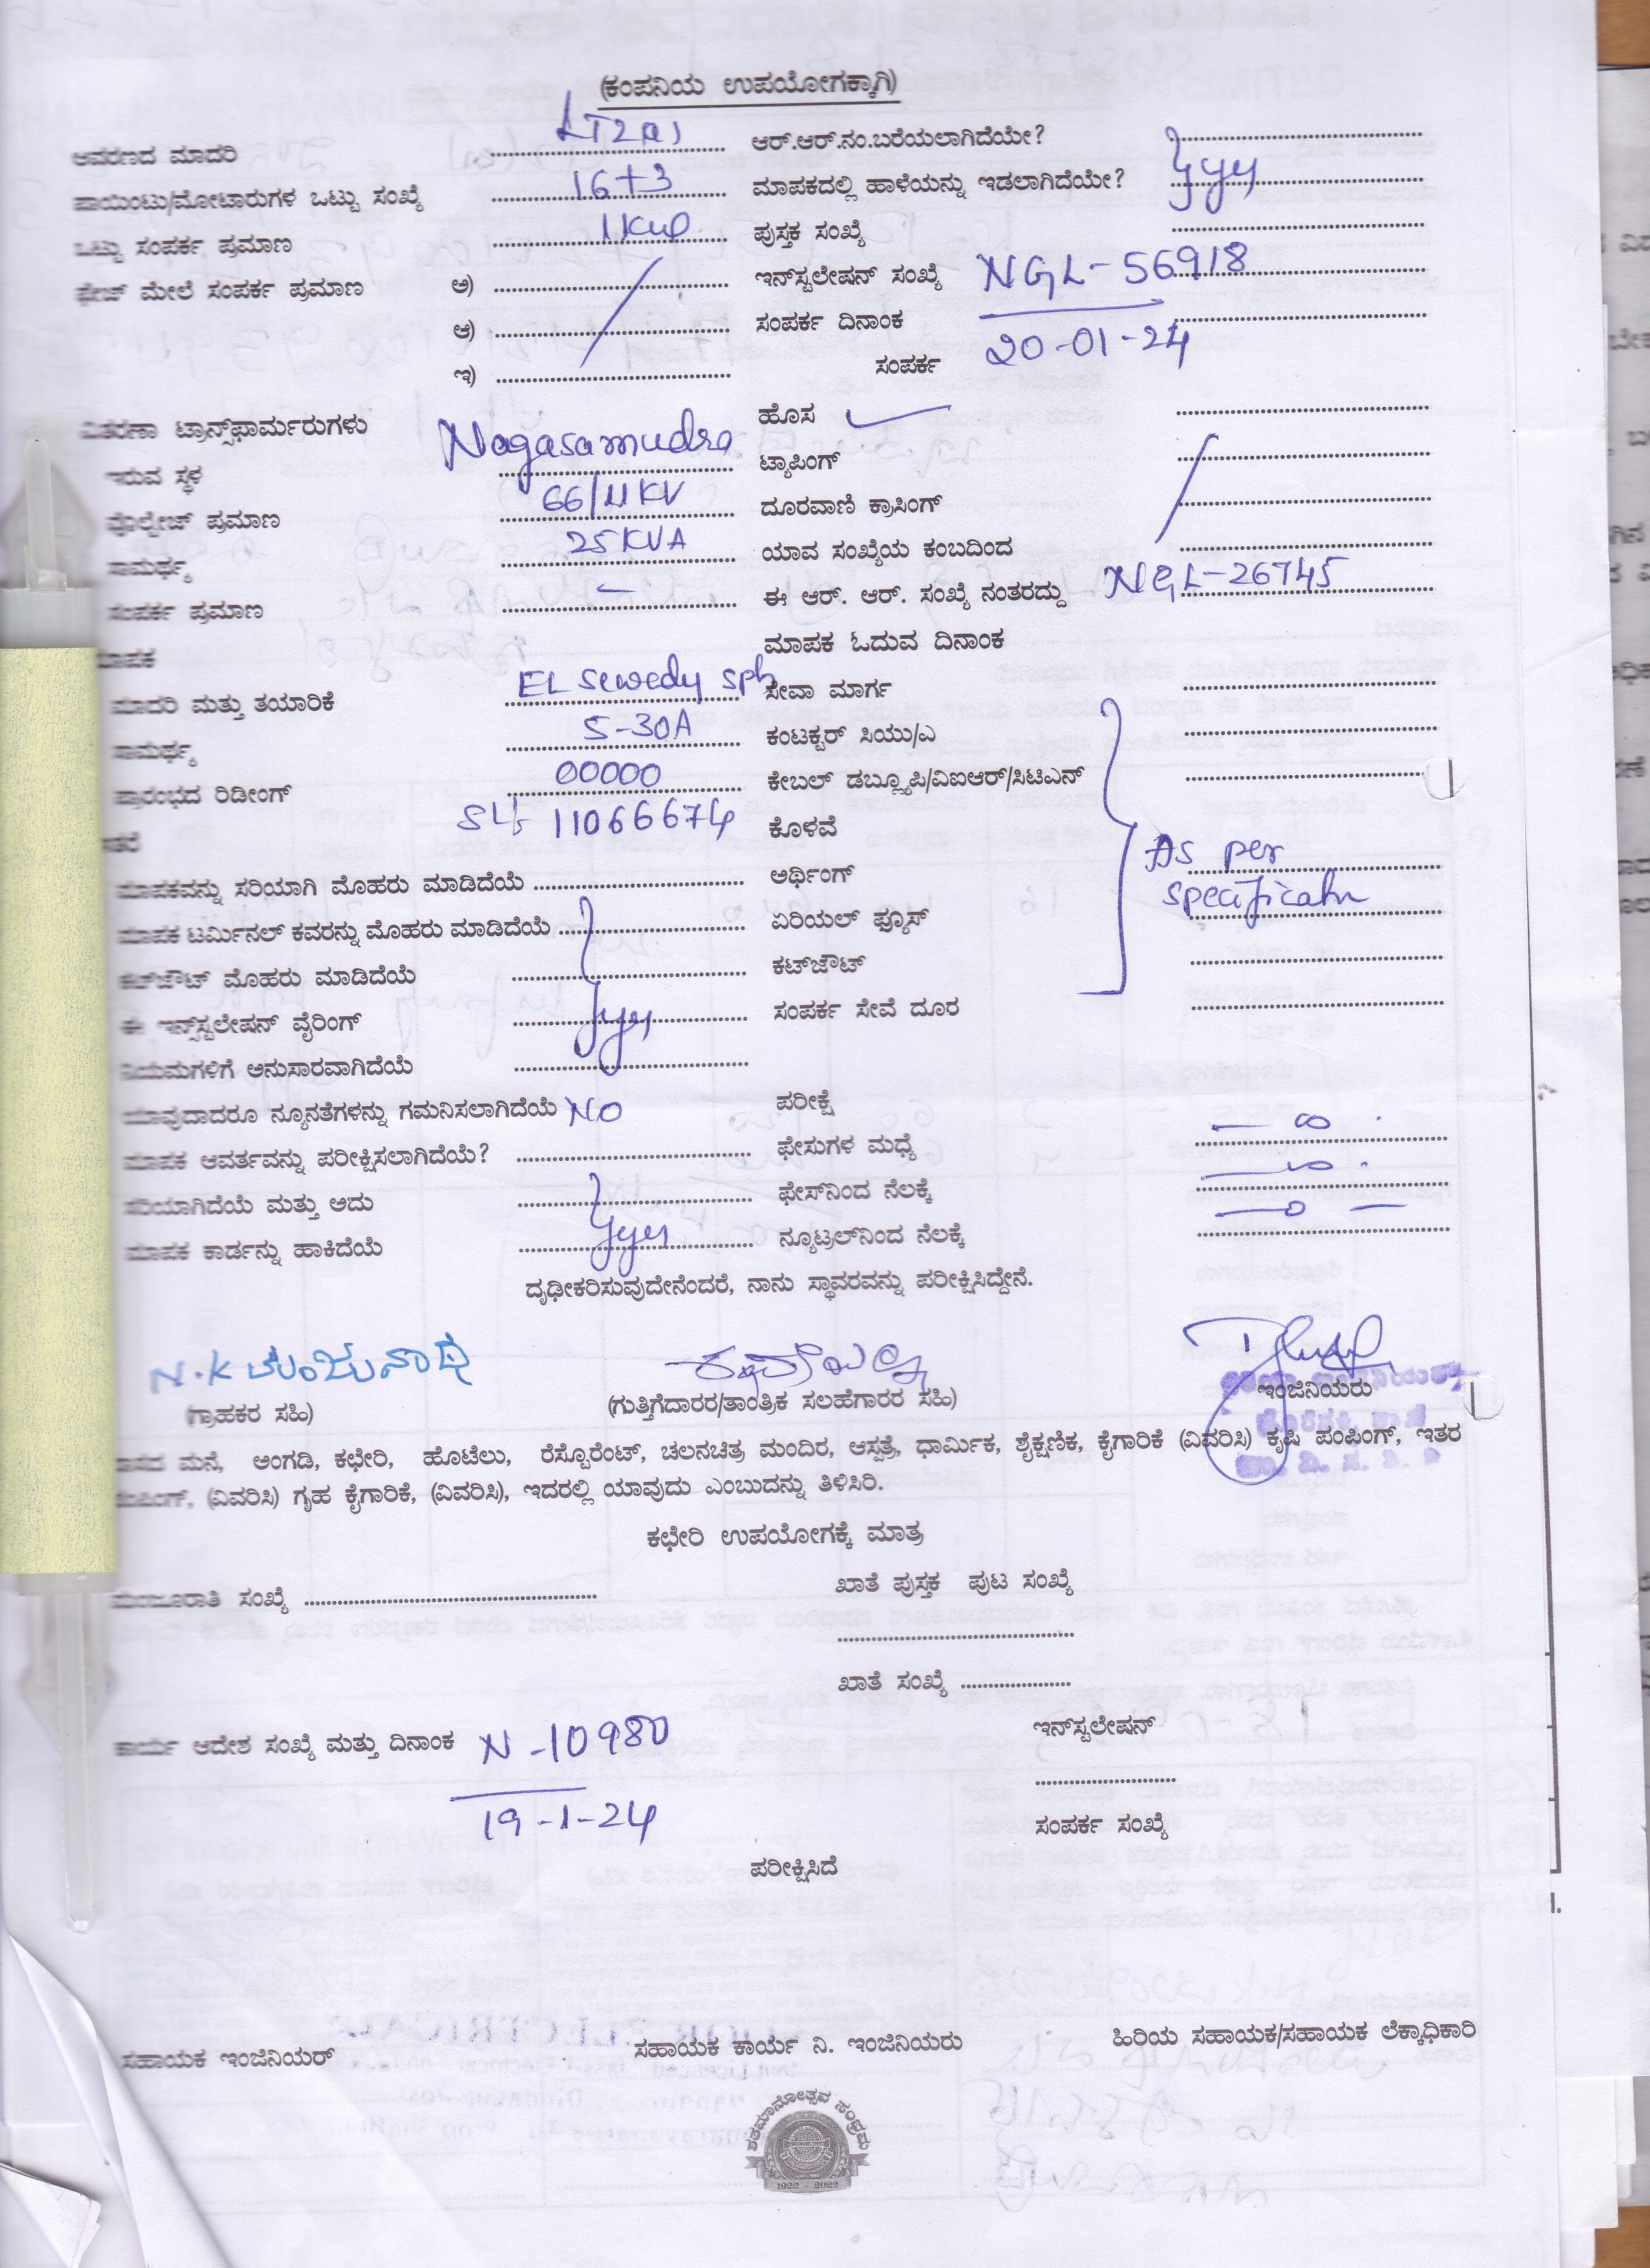 (ಕಂಪನಿಯ ಉಪಯೋಗಕ್ಕಾಗಿ)
ಆವರಣದ ಮಾದರಿ LT2(a) ಆರ್.ಆರ್.ನಂ.ಬರೆಯಲಾಗಿದೆಯೇ?
ಪಾಯಿಂಟು/ಮೋಟಾರುಗಳ ಒಟ್ಟು ಸಂಖ್ಯೆ 16+3 ಮಾಪಕದಲ್ಲಿ ಹಾಳೆಯನ್ನು ಇಡಲಾಗಿದೆಯೇ? yes
ಒಟ್ಟು ಸಂಪರ್ಕ ಪ್ರಮಾಣ 1KW ಪುಸ್ತಕ ಸಂಖ್ಯೆ
ಫೇಜ್ ಮೇಲೆ ಸಂಪರ್ಕ ಪ್ರಮಾಣ ಅ) ಇನ್‌ಸ್ಟಲೇಷನ್ ಸಂಖ್ಯೆ NGL-56918
ಆ) ಸಂಪರ್ಕ ದಿನಾಂಕ 20-01-24
ಇ) ಸಂಪರ್ಕ
ವಿತರಣಾ ಟ್ರಾನ್ಸ್‌ಫಾರ್ಮರುಗಳು ಹೊಸ
ಇರುವ ಸ್ಥಳ Nagasamudra ಟ್ಯಾಪಿಂಗ್
ವೊಲ್ಟೇಜ್ ಪ್ರಮಾಣ 66/11KV ದೂರವಾಣಿ ಕ್ರಾಸಿಂಗ್
ಸಾಮರ್ಥ್ಯ 25KVA ಯಾವ ಸಂಖ್ಯೆಯ ಕಂಬದಿಂದ
ಸಂಪರ್ಕ ಪ್ರಮಾಣ - ಈ ಆರ್. ಆರ್. ಸಂಖ್ಯೆ ನಂತರದ್ದು NGL-26745
ಮಾಪಕ ಮಾಪಕ ಓದುವ ದಿನಾಂಕ
ಮಾದರಿ ಮತ್ತು ತಯಾರಿಕೆ EL Sewedy Sph ಸೇವಾ ಮಾರ್ಗ
ಸಾಮರ್ಥ್ಯ 5-30A ಕಂಟಕ್ಟರ್ ಸಿಯು/ಎ
ಪ್ರಾರಂಭದ ರಿಡೀಂಗ್ 00000 ಕೇಬಲ್ ಡಬ್ಲ್ಯೂಪಿ/ವಿಐಆರ್/ಸಿಟಿಎನ್
11066674 ಕೊಳವೆ
ಮಾಪಕವನ್ನು ಸರಿಯಾಗಿ ಮೊಹರು ಮಾಡಿದೆಯೆ ಅರ್ಥಿಂಗ್ As per
ಮಾಪಕ ಟರ್ಮಿನಲ್ ಕವರನ್ನು ಮೊಹರು ಮಾಡಿದೆಯೆ ಏರಿಯಲ್ ಫ್ಯೂಸ್ specificatn
ಕಟ್‌ಔಟ್ ಮೊಹರು ಮಾಡಿದೆಯೆ ಕಟ್‌ಔಟ್
ಈ ಇನ್‌ಸ್ಟಲೇಷನ್ ವೈರಿಂಗ್ yes ಸಂಪರ್ಕ ಸೇವೆ ದೂರ
ನಿಯಮಗಳಿಗೆ ಅನುಸಾರವಾಗಿದೆಯೆ
ಯಾವುದಾದರೂ ನ್ಯೂನತೆಗಳನ್ನು ಗಮನಿಸಲಾಗಿದೆಯೆ NO ಪರೀಕ್ಷೆ
ಮಾಪಕ ಆವರ್ತವನ್ನು ಪರೀಕ್ಷಿಸಲಾಗಿದೆಯೆ? ಫೇಸುಗಳ ಮಧ್ಯೆ
ಸರಿಯಾಗಿದೆಯೆ ಮತ್ತು ಅದು ಫೇಸ್‌ನಿಂದ ನೆಲಕ್ಕೆ
ಮಾಪಕ ಕಾರ್ಡನ್ನು ಹಾಕಿದೆಯೆ yes ನ್ಯೂಟ್ರಲ್‌ನಿಂದ ನೆಲಕ್ಕೆ
ದೃಢೀಕರಿಸುವುದೇನೆಂದರೆ, ನಾನು ಸ್ಥಾವರವನ್ನು ಪರೀಕ್ಷಿಸಿದ್ದೇನೆ.
N.K ಮಂಜುನಾಥ
(ಗ್ರಾಹಕರ ಸಹಿ) (ಗುತ್ತಿಗೆದಾರರ/ತಾಂತ್ರಿಕ ಸಲಹೆಗಾರರ ಸಹಿ) ಇಂಜಿನಿಯರು
ಮನೆ, ಅಂಗಡಿ, ಕಛೇರಿ, ಹೊಟೆಲು, ರೆಸ್ಟೊರೆಂಟ್, ಚಲನಚಿತ್ರ ಮಂದಿರ, ಆಸ್ಪತ್ರೆ, ಧಾರ್ಮಿಕ, ಶೈಕ್ಷಣಿಕ, ಕೈಗಾರಿಕೆ (ವಿವರಿಸಿ) ಕೃಷಿ ಪಂಪಿಂಗ್, ಇತರ
(ವಿವರಿಸಿ) ಗೃಹ ಕೈಗಾರಿಕೆ, (ವಿವರಿಸಿ), ಇದರಲ್ಲಿ ಯಾವುದು ಎಂಬುದನ್ನು ತಿಳಿಸಿರಿ.
ಕಛೇರಿ ಉಪಯೋಗಕ್ಕೆ ಮಾತ್ರ
ಮಂಜೂರಾತಿ ಸಂಖ್ಯೆ ಖಾತೆ ಪುಸ್ತಕ ಪುಟ ಸಂಖ್ಯೆ
ಖಾತೆ ಸಂಖ್ಯೆ
ಕಾರ್ಯ ಆದೇಶ ಸಂಖ್ಯೆ ಮತ್ತು ದಿನಾಂಕ N-10980 ಇನ್‌ಸ್ಟಲೇಷನ್
19-1-24 ಸಂಪರ್ಕ ಸಂಖ್ಯೆ
ಪರೀಕ್ಷಿಸಿದೆ
ಸಹಾಯಕ ಇಂಜಿನಿಯರ್ ಸಹಾಯಕ ಕಾರ್ಯ ನಿ. ಇಂಜಿನಿಯರು ಹಿರಿಯ ಸಹಾಯಕ/ಸಹಾಯಕ ಲೆಕ್ಕಾಧಿಕಾರಿ
ಶತಮಾನೋತ್ಸವ ಸಂಭ್ರಮ
1922 - 2022